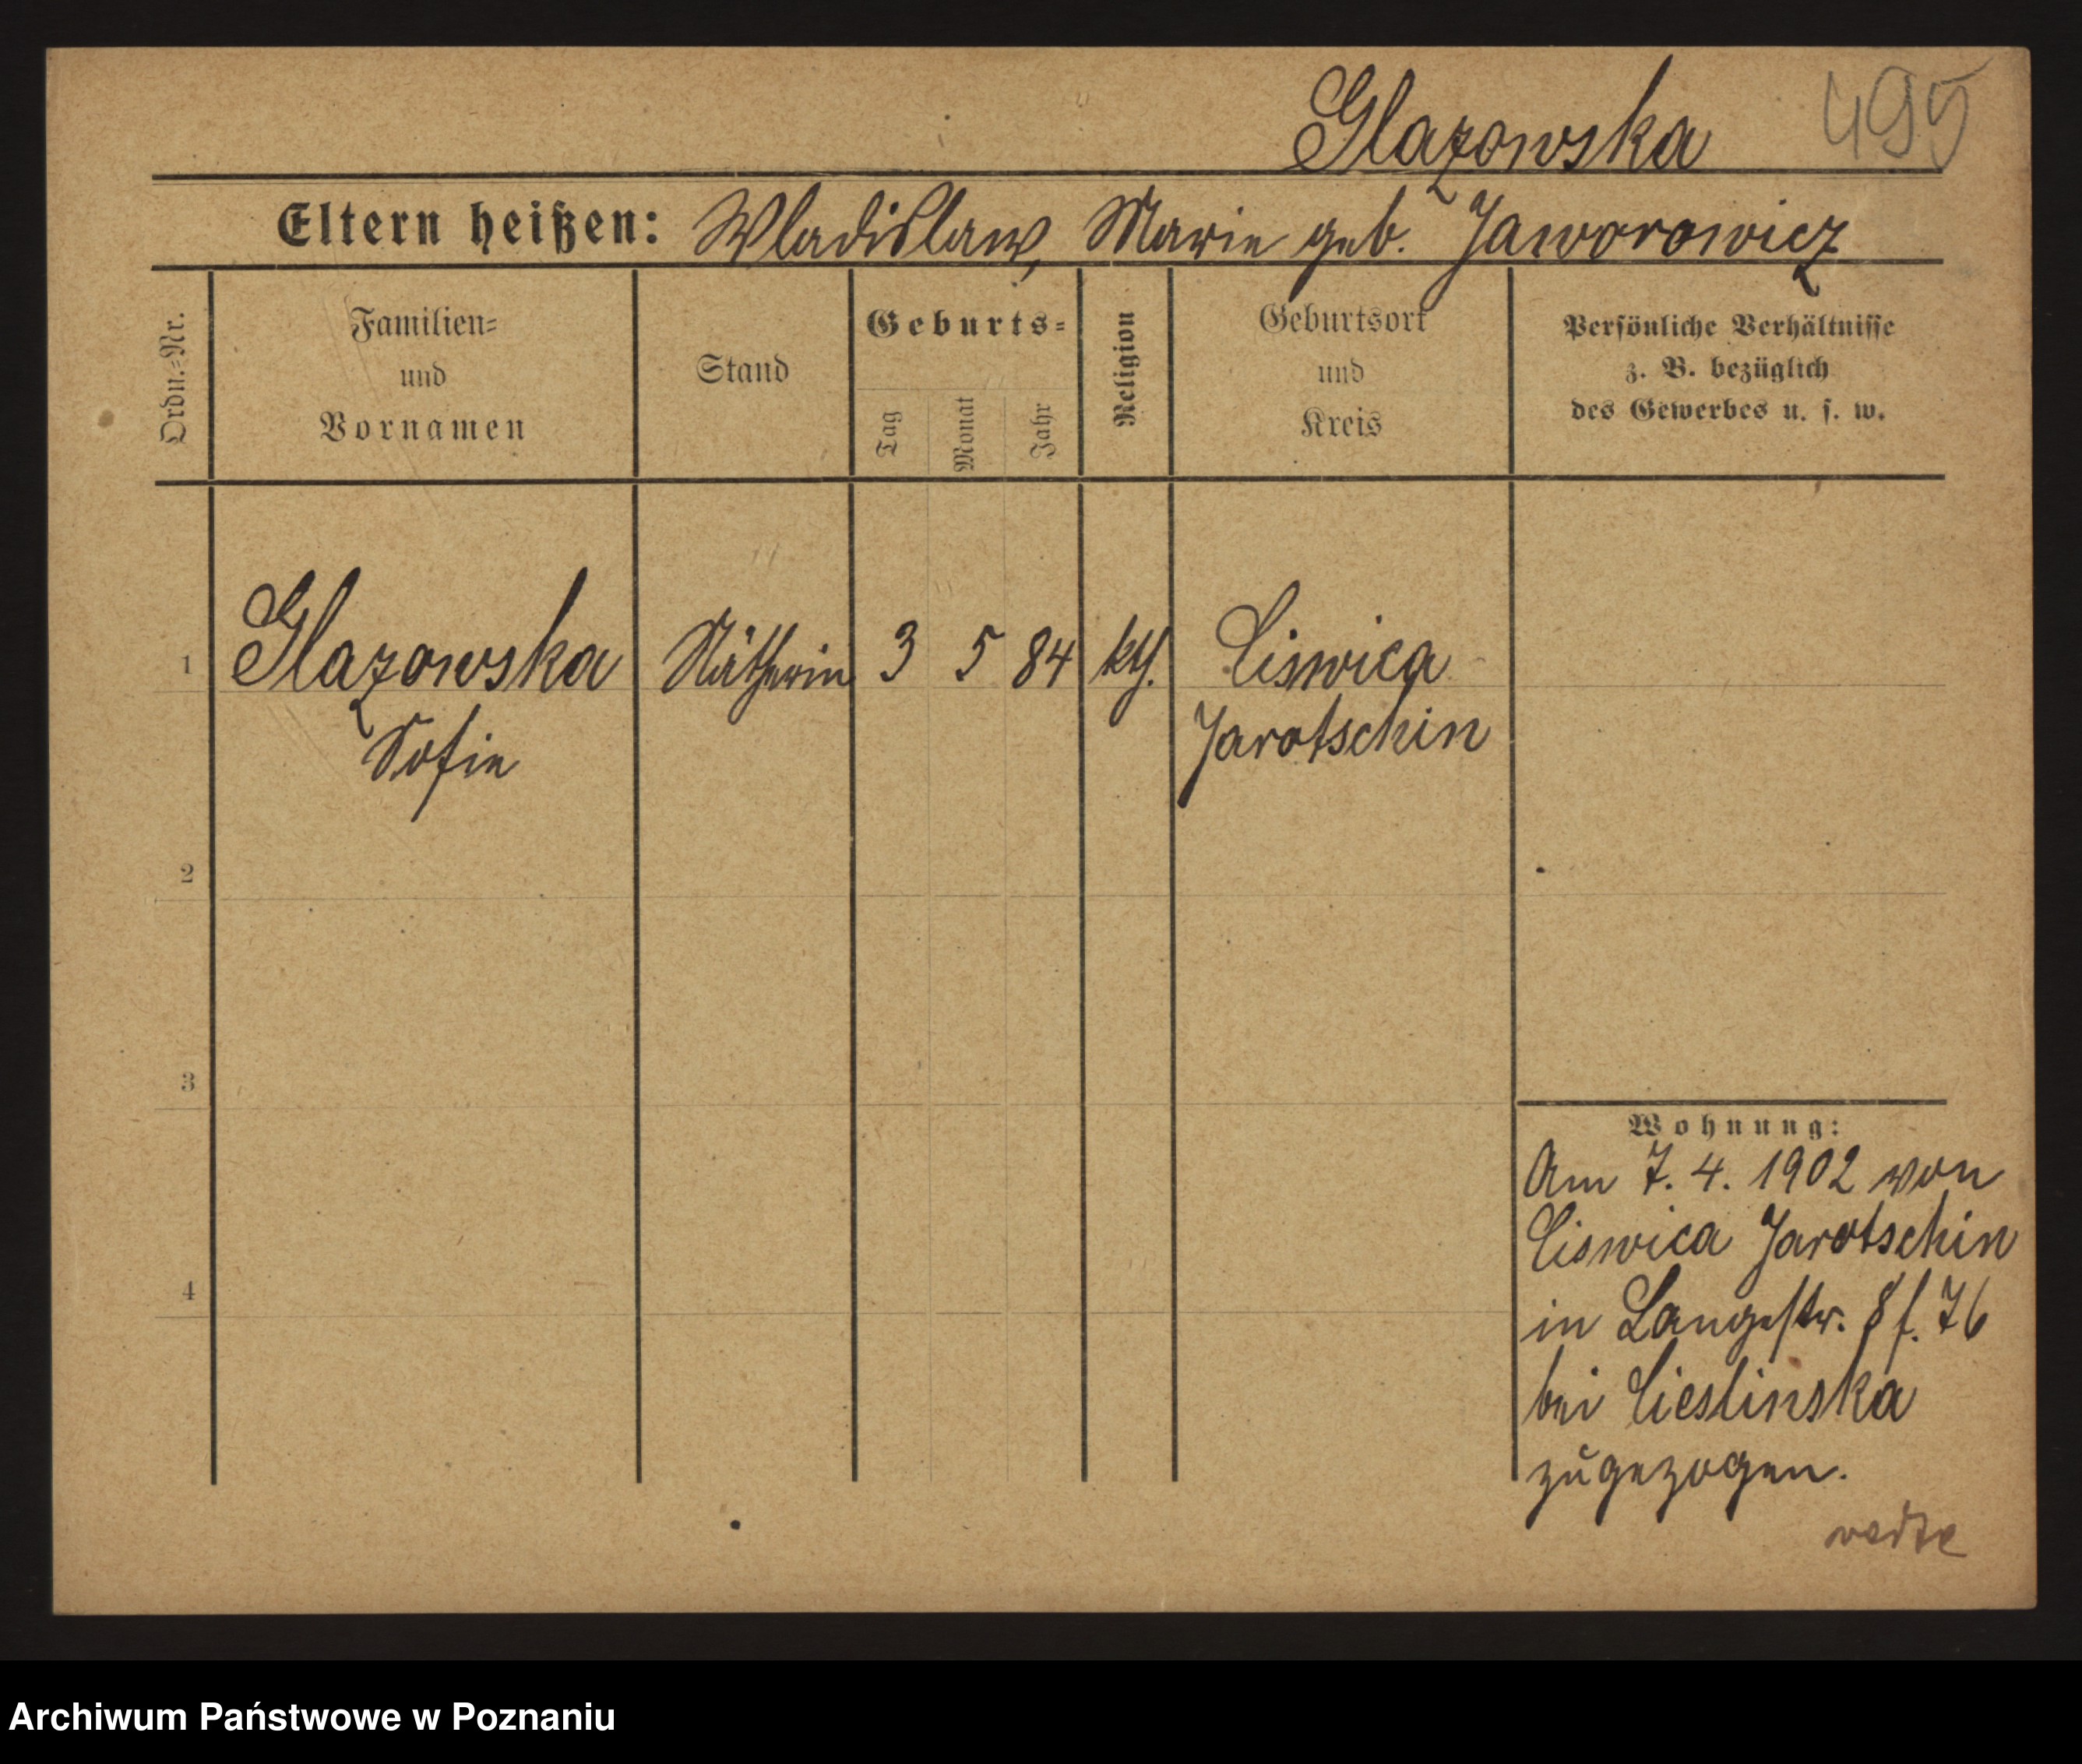 Glazowska 495
Eltern heißen: Wladislaw, Marie geb. Jaworowicz
Ordn.=Nr.
Familien=
und
Vornamen
Stand
Geburts=
Tag
Monat
Jahr
Religion
Geburtsort
und
Kreis
Persönliche Verhältnisse
z. B. bezüglich
des Gewerbes u. s. w.
1 Glazowska Nätherin 3 5 84 kth. Ciswica
Sofie Jarotschin
2
3
4
Wohnung:
Am 7. 4. 1902 von
Ciswica Jarotschin
in Langestr. 8 f. 76
bei Cieslinska
zugezogen.
Archiwum Państwowe w Poznaniu